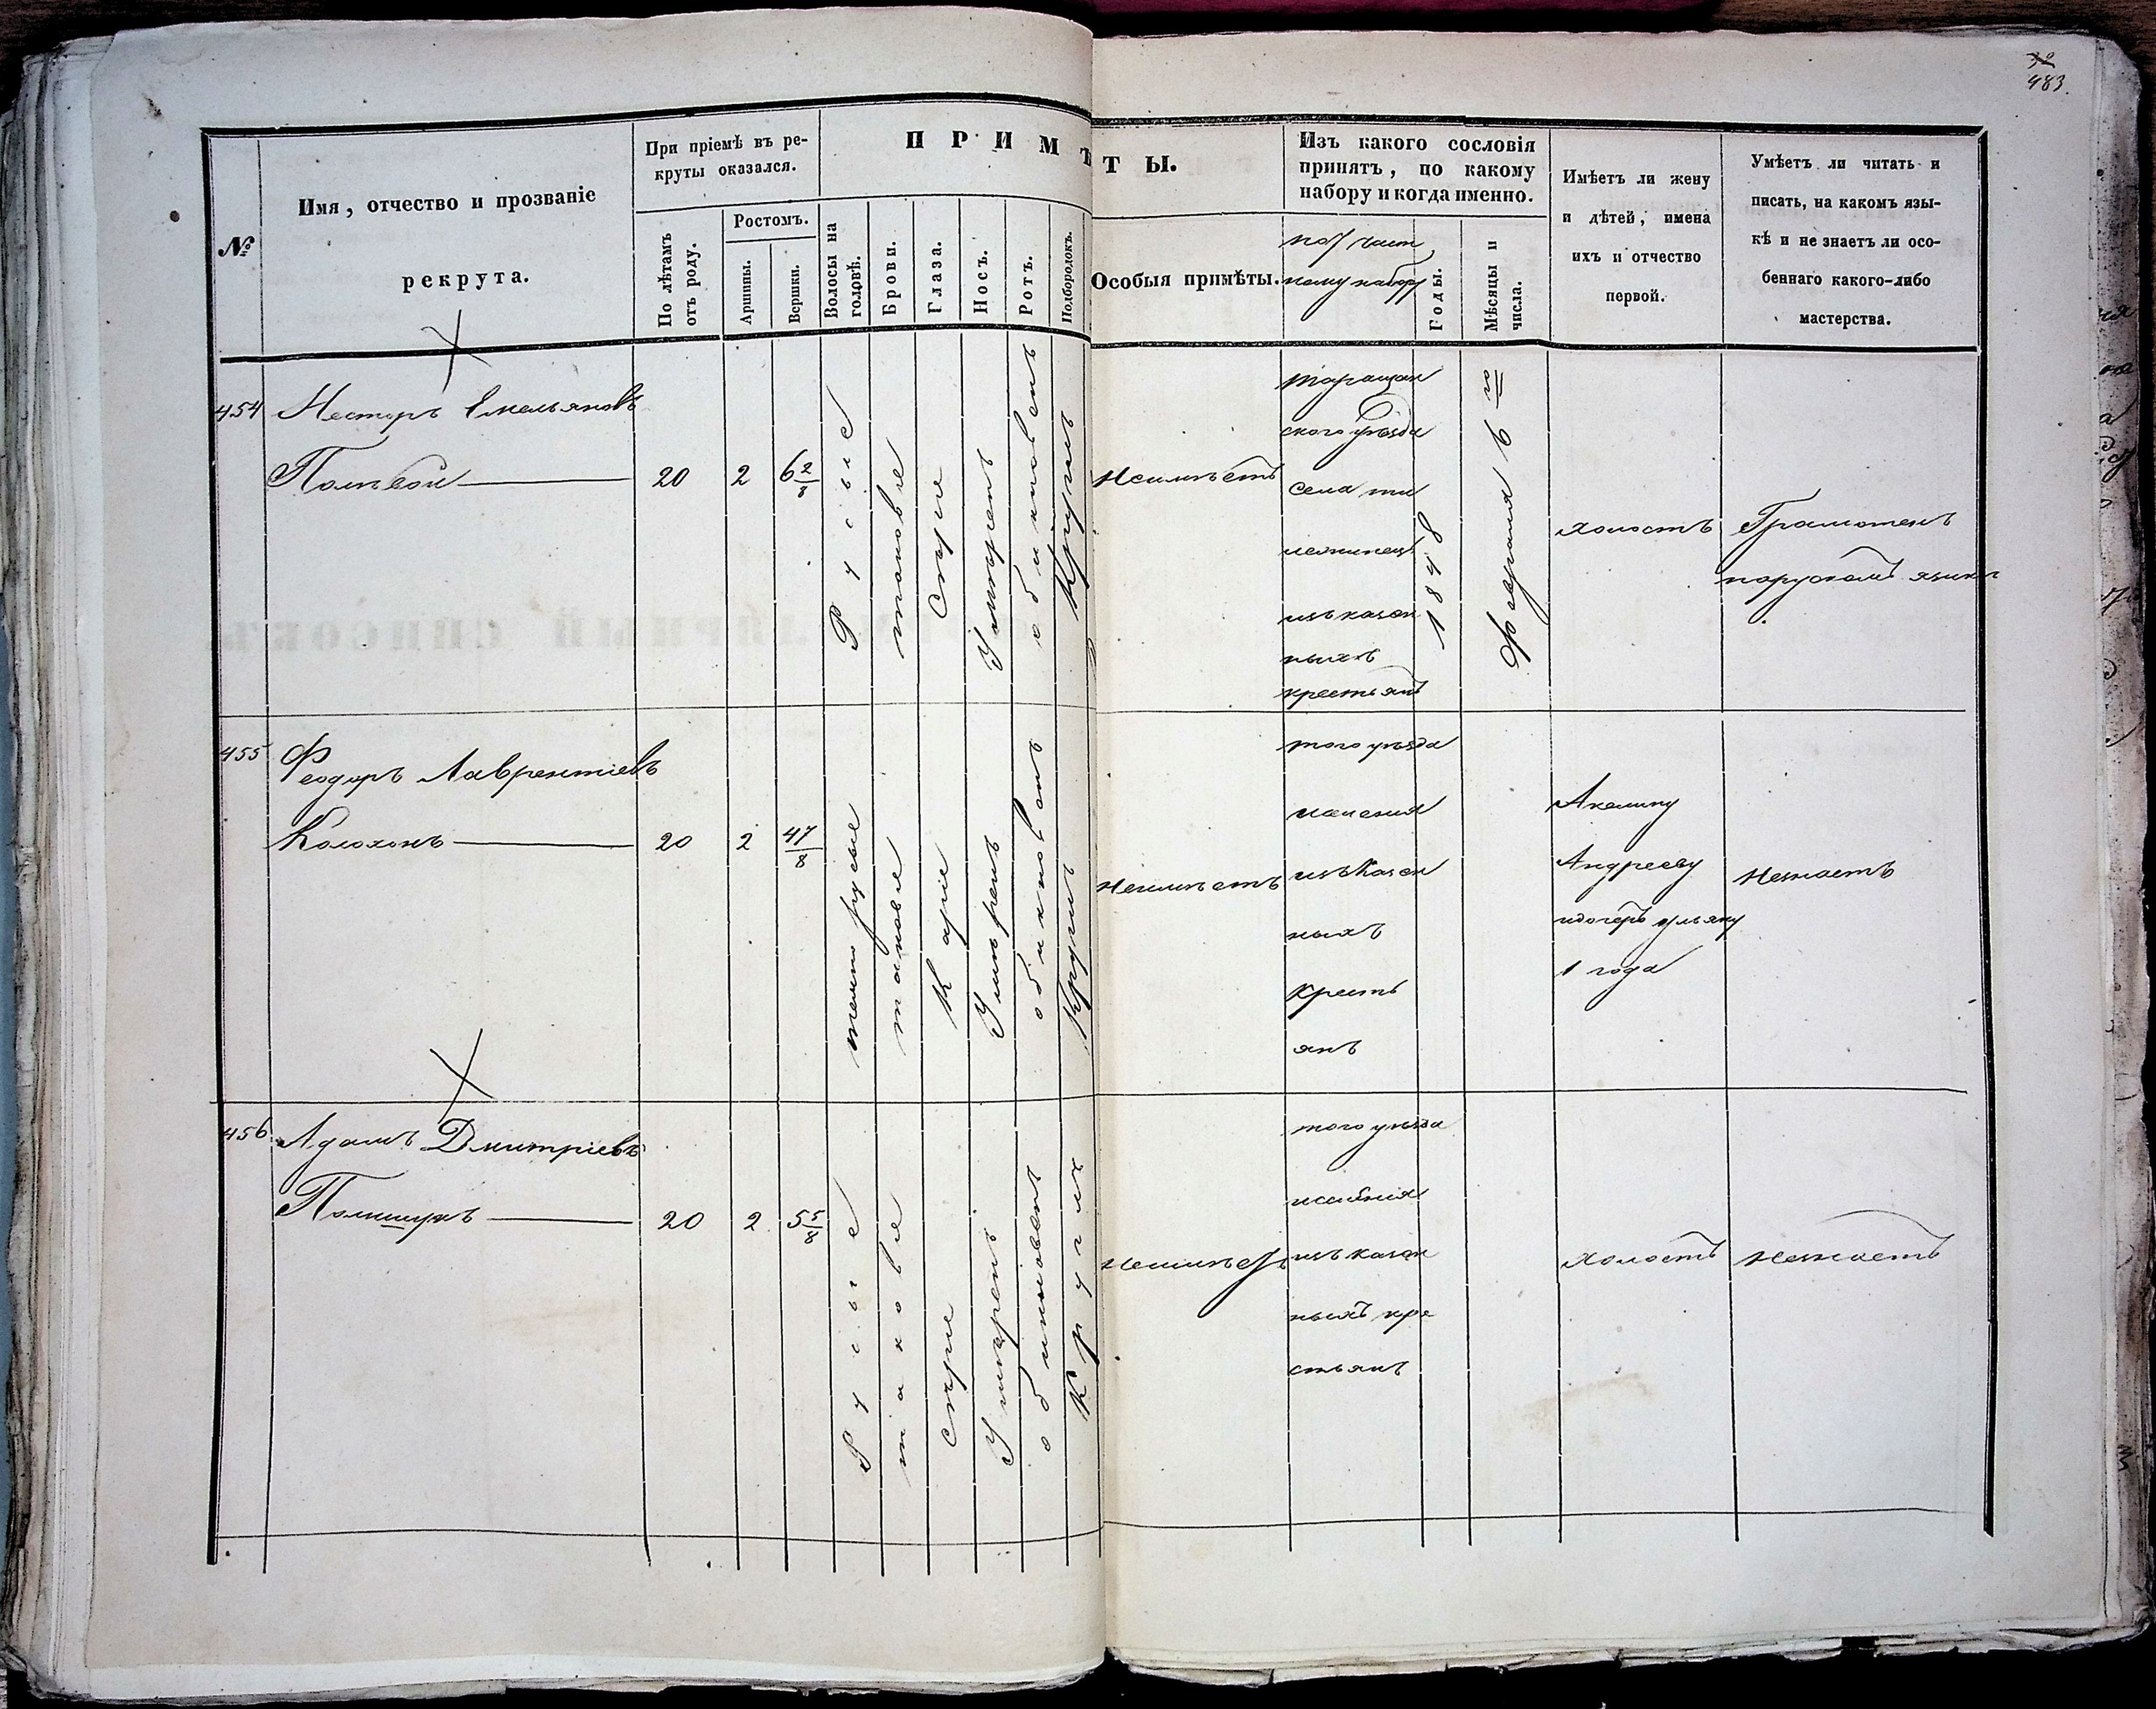 483.
№
Имя, отчество и прозваніе
рекрута.
При пріемѣ въ ре-
круты оказался.
По лѣтамъ
отъ роду.
Ростомъ.
Аршины.
Вершки.
ПРИМѢТЫ.
Волосы на
головѣ.
Брови.
Глаза.
Носъ.
Ротъ.
Подбородокъ.
Особыя примѣты.
Изъ какого сословія
принятъ, по какому
набору и когда именно.
по 7 част
ному набору
Годы.
Мѣсяцы и
числа.
Имѣетъ ли жену
и дѣтей, имена
ихъ и отчество
первой.
Умѣетъ ли читать и
писать, на какомъ язы-
кѣ и не знаетъ ли осо-
беннаго какого-либо
мастерства.
454
Несторъ Емельяновъ
20
2
6 2/8
Русые
таковые
Серые
Умѣренъ
обыкновенъ
Круглъ
Неимѣетъ
таращан
ского уѣзда
села
изъ казен
ныхъ
крестьянъ
1848
Февраля 6 го
холостъ
Грамотенъ
порускомъ языкѣ
455
Феодоръ Лаврентіевъ
Колохонъ
20
2
4 7/8
темнорусые
таковые
Каріе
Умѣренъ
обыкновенъ
Круглъ
Неимѣетъ
того уѣзда
изъ Казен
ныхъ
Кресть
янъ
Акелину
Андрееву
идочерь ульяну
1 года
Незнаетъ
456
Адамъ Дмитріевъ
Полищукъ
20
2
5 5/8
Русые
таковые
Серые
Умѣренъ
обыкновенъ
Круглъ
Неимѣетъ
того уѣзда
изъ казен
ныхъ кре
стьянъ
холостъ
Незнаетъ